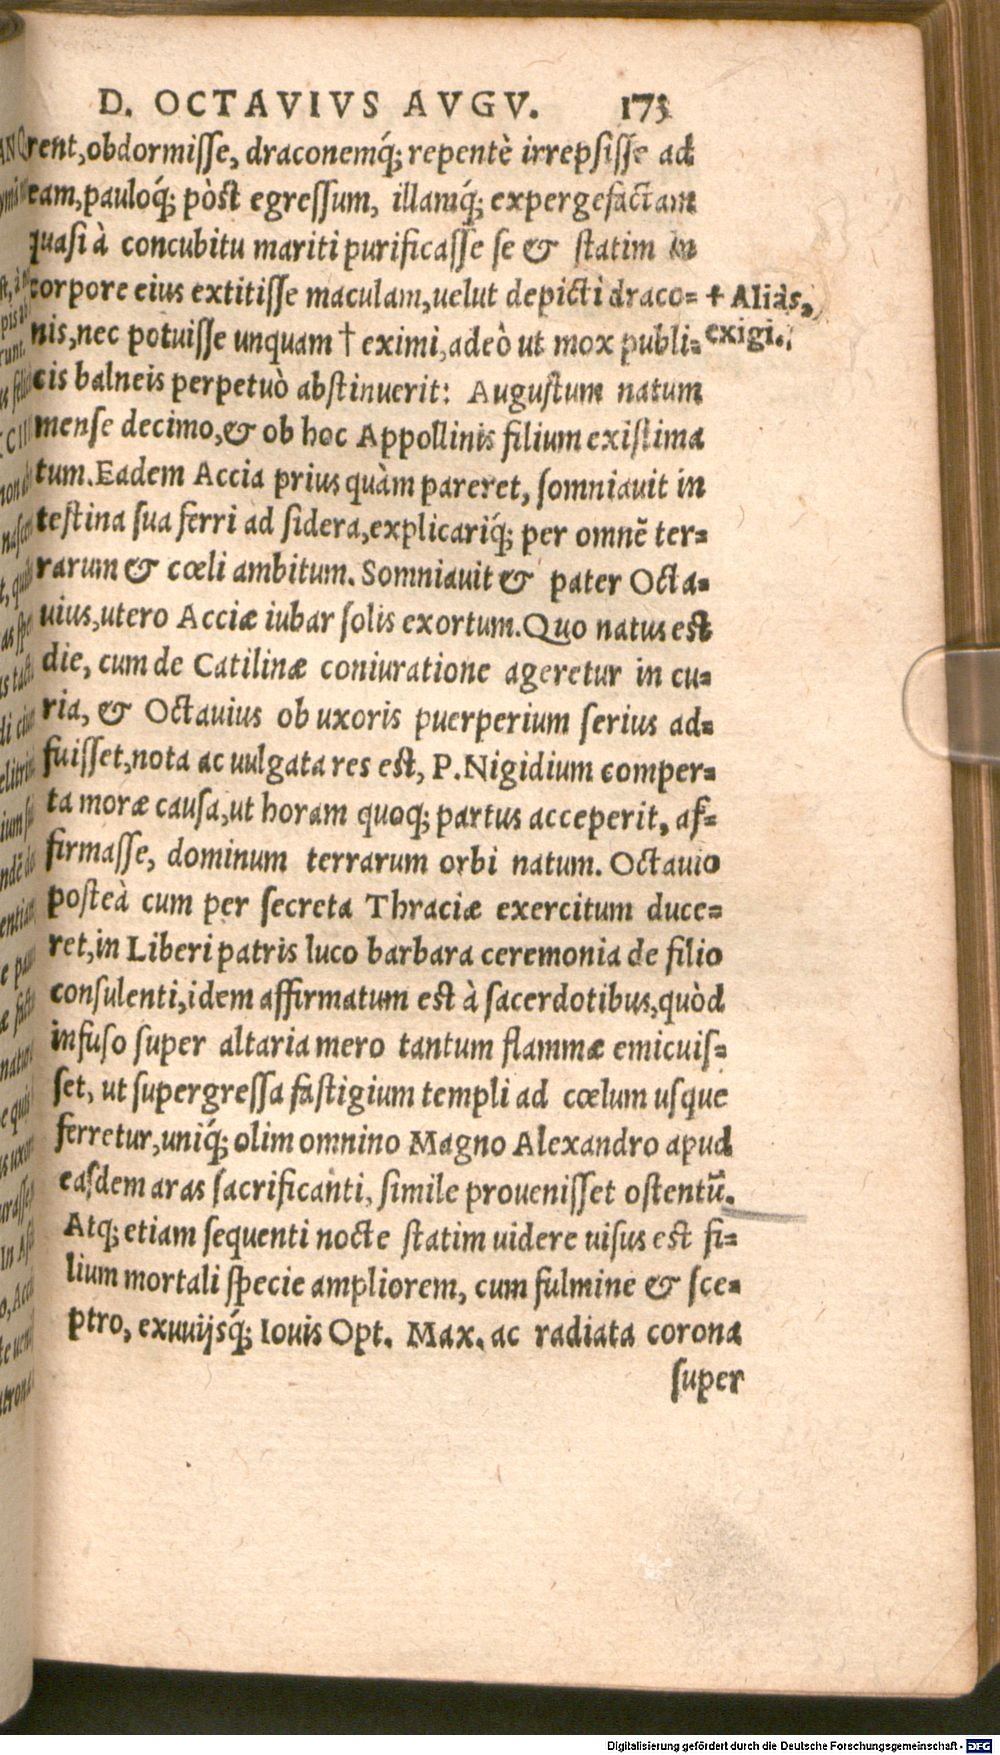 D. OCTAVIVS AVGV. 173
rent, obdormisse, draconemq́; repentè irrepsisse ad
eam, pauloq́; pòst egressum, illamq́; expergefactam
quasi à concubitu mariti purificasse se & statim in
corpore eius extitisse maculam, uelut depicti draco= + Aliàs,
nis, nec potuisse unquam † eximi, adeò ut mox publi= exigi.
cis balneis perpetuò abstinuerit: Augustum natum
mense decimo, & ob hoc Appollinis filium existima
tum. Eadem Accia prius quàm pareret, somniauit in
testina sua ferri ad sidera, explicariq́; per omnẽ ter=
rarum & cœli ambitum. Somniauit & pater Octa=
uius, utero Acciæ iubar solis exortum. Quo natus est
die, cum de Catilinæ coniuratione ageretur in cu=
ria, & Octauius ob uxoris puerperium serius ad=
fuisset, nota ac uulgata res est, P. Nigidium comper=
ta moræ causa, ut horam quoq; partus acceperit, af=
firmasse, dominum terrarum orbi natum. Octauio
posteà cum per secreta Thraciæ exercitum duce=
ret, in Liberi patris luco barbara ceremonia de filio
consulenti, idem affirmatum est à sacerdotibus, quòd
infuso super altaria mero tantum flammæ emicuis=
set, ut supergressa fastigium templi ad cœlum usque
ferretur, uniq́; olim omnino Magno Alexandro apud
easdem aras sacrificanti, simile prouenisset ostentũ.
Atq; etiam sequenti nocte statim uidere uisus est fi=
lium mortali specie ampliorem, cum fulmine & sce=
ptro, exuuijsq́; Iouis Opt. Max. ac radiata corona
super
Digitalisierung gefördert durch die Deutsche Forschungsgemeinschaft - DFG